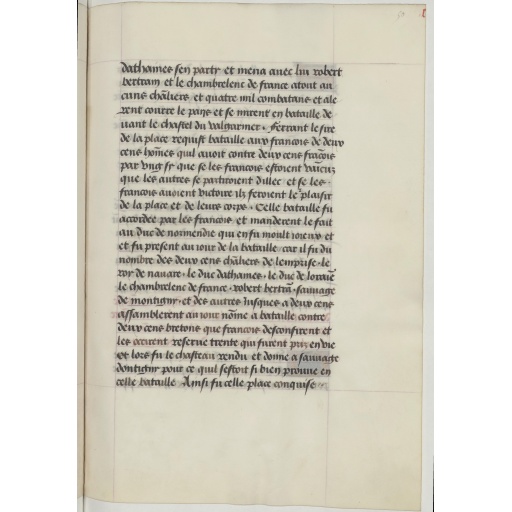 dathaines sen party et mena avec lui robert
bertram et le chambrelenc de france atout au
cuns chlīers et quatre mil combatans et ale
rent courre le pays et se mirent en bataille de
uant le chastel du valgarnier. Ferrant le sire
de la place requist bataille aux francois de deux
cens hom̄es quil auoit contre deux cens frācois
par vng sy que se les francois estoient vaicuz
que les autres se partiroient dillec et se les
francois auoient victoire ilz feroient le plaisir
de la place et de leurs corps. Celle bataille fu
accordee par les francois et manderent le fait
au duc de normendie qui en fu moult ioieux et
et fu present au iour de la bataille car il fu du
nombre des deux cens chlīers de lemprise. le
roy de nauare. le duc dathaines. le duc de lorraiē
le chambrelenc de france. robert bertrā. sauuage
de montigny. et des autres Jusques a deux cens
assamblerent au iour nōme a bataille contre
deux cens bretons que francois desconfirent et
les occirent reserue trente qui furent pris en vie
Et lors fu le chasteau rendu et donne a sauuage
dontigny pour ce quil sestoit si bien prouue en
celle bataille Ainsi fu celle place conquise